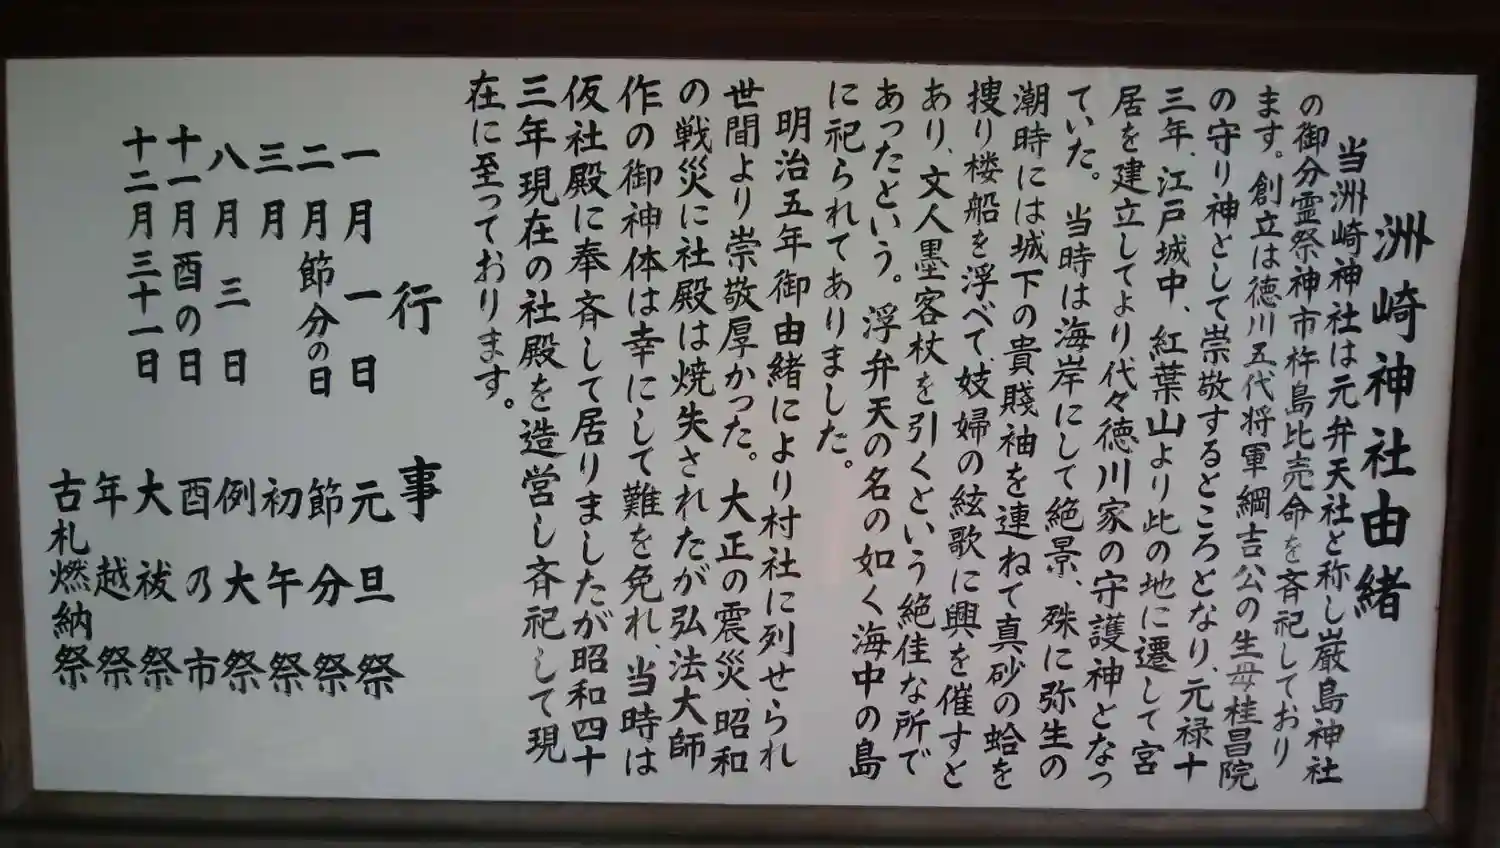 洲崎神社由緒
当洲崎神社は元弁天社と称し巌島神社
の御分霊祭神市杵島比売命を斉祀しており
ます。創立は徳川五代将軍綱吉公の生母桂昌院
の守り神として崇敬するところとなり、元禄十
三年、江戸城中、紅葉山より此の地に遷して宮
居を建立してより代々徳川家の守護神となつ
ていた。当時は海岸にして絶景、殊に弥生の
潮時には城下の貴賤袖を連ねて真砂の蛤を
捜り楼船を浮べて、妓婦の絃歌に興を催すと
あり、文人墨客杖を引くという絶佳な所で
あったという。浮弁天の名の如く海中の島
に祀られてありました。
明治五年御由緒により村社に列せられ
世間より崇敬厚かった。大正の震災、昭和
の戦災に社殿は焼失されたが弘法大師
作の御神体は幸にして難を免れ、当時は
仮社殿に奉斉して居りましたが昭和四十
三年現在の社殿を造営し斉祀して現
在に至っております。
行事
一月一日 元旦祭
二月節分の日 節分祭
三月 初午祭
八月三日 例大祭
十一月酉の日 酉の市
十二月三十一日 大祓祭
年越祭
古札燃納祭